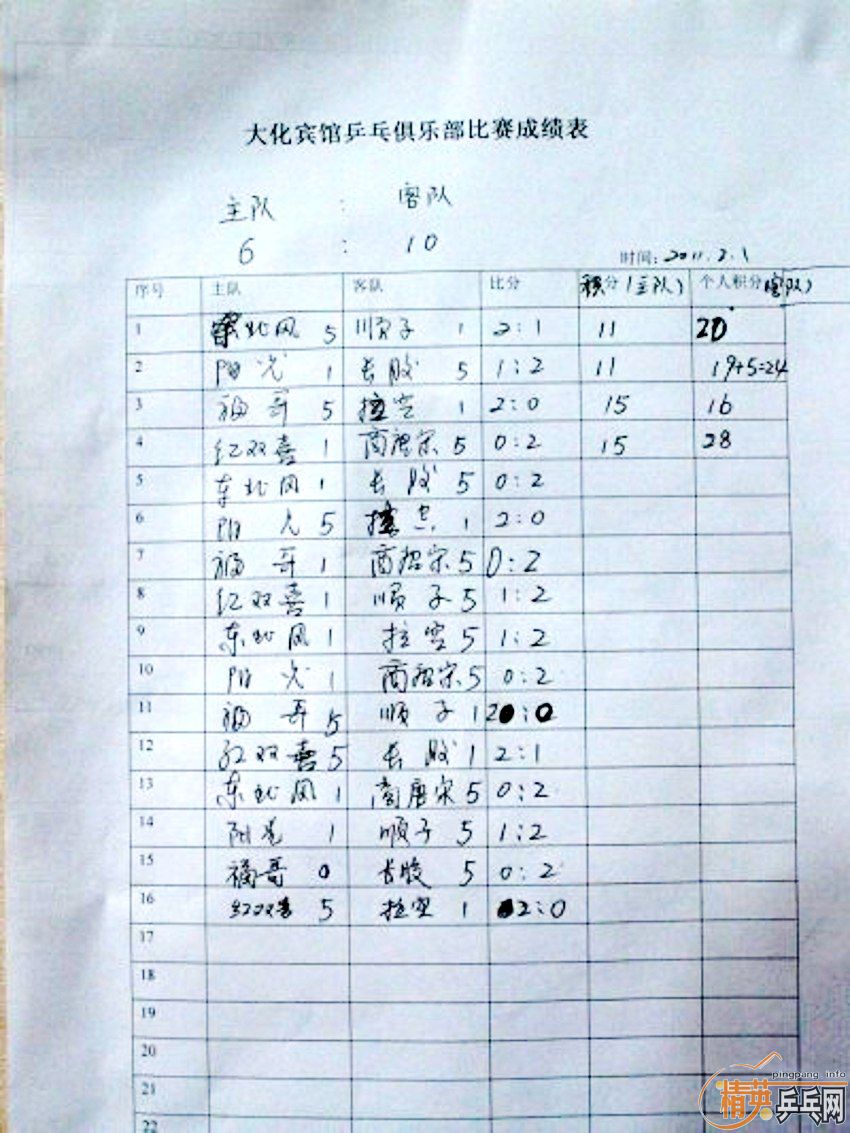 大化宾馆乒乓俱乐部比赛成绩表
主队 : 客队
6 : 10
时间: 2011.2.1
序号 主队 客队 比分 积分(主队) 个人积分(客队)
1 东北风 5 顺子 1 2:1 11 20
2 阳光 1 长胶 5 1:2 11 19+5=24
3 福哥 5 拉空 1 2:0 15 16
4 红双喜 1 商唐宋 5 0:2 15 28
5 东北风 1 长胶 5 0:2
6 阳光 5 拉空 1 2:0
7 福哥 1 商唐宋 5 0:2
8 红双喜 1 顺子 5 1:2
9 东北风 1 拉空 5 1:2
10 阳光 1 商唐宋 5 0:2
11 福哥 5 顺子 1 2:0
12 红双喜 5 长胶 1 2:1
13 东北风 1 商唐宋 5 0:2
14 阳光 1 顺子 5 1:2
15 福哥 0 长胶 5 0:2
16 红双喜 5 拉空 1 2:0
17
18
19
20
21
22
pingpang.info
精英乒乓网